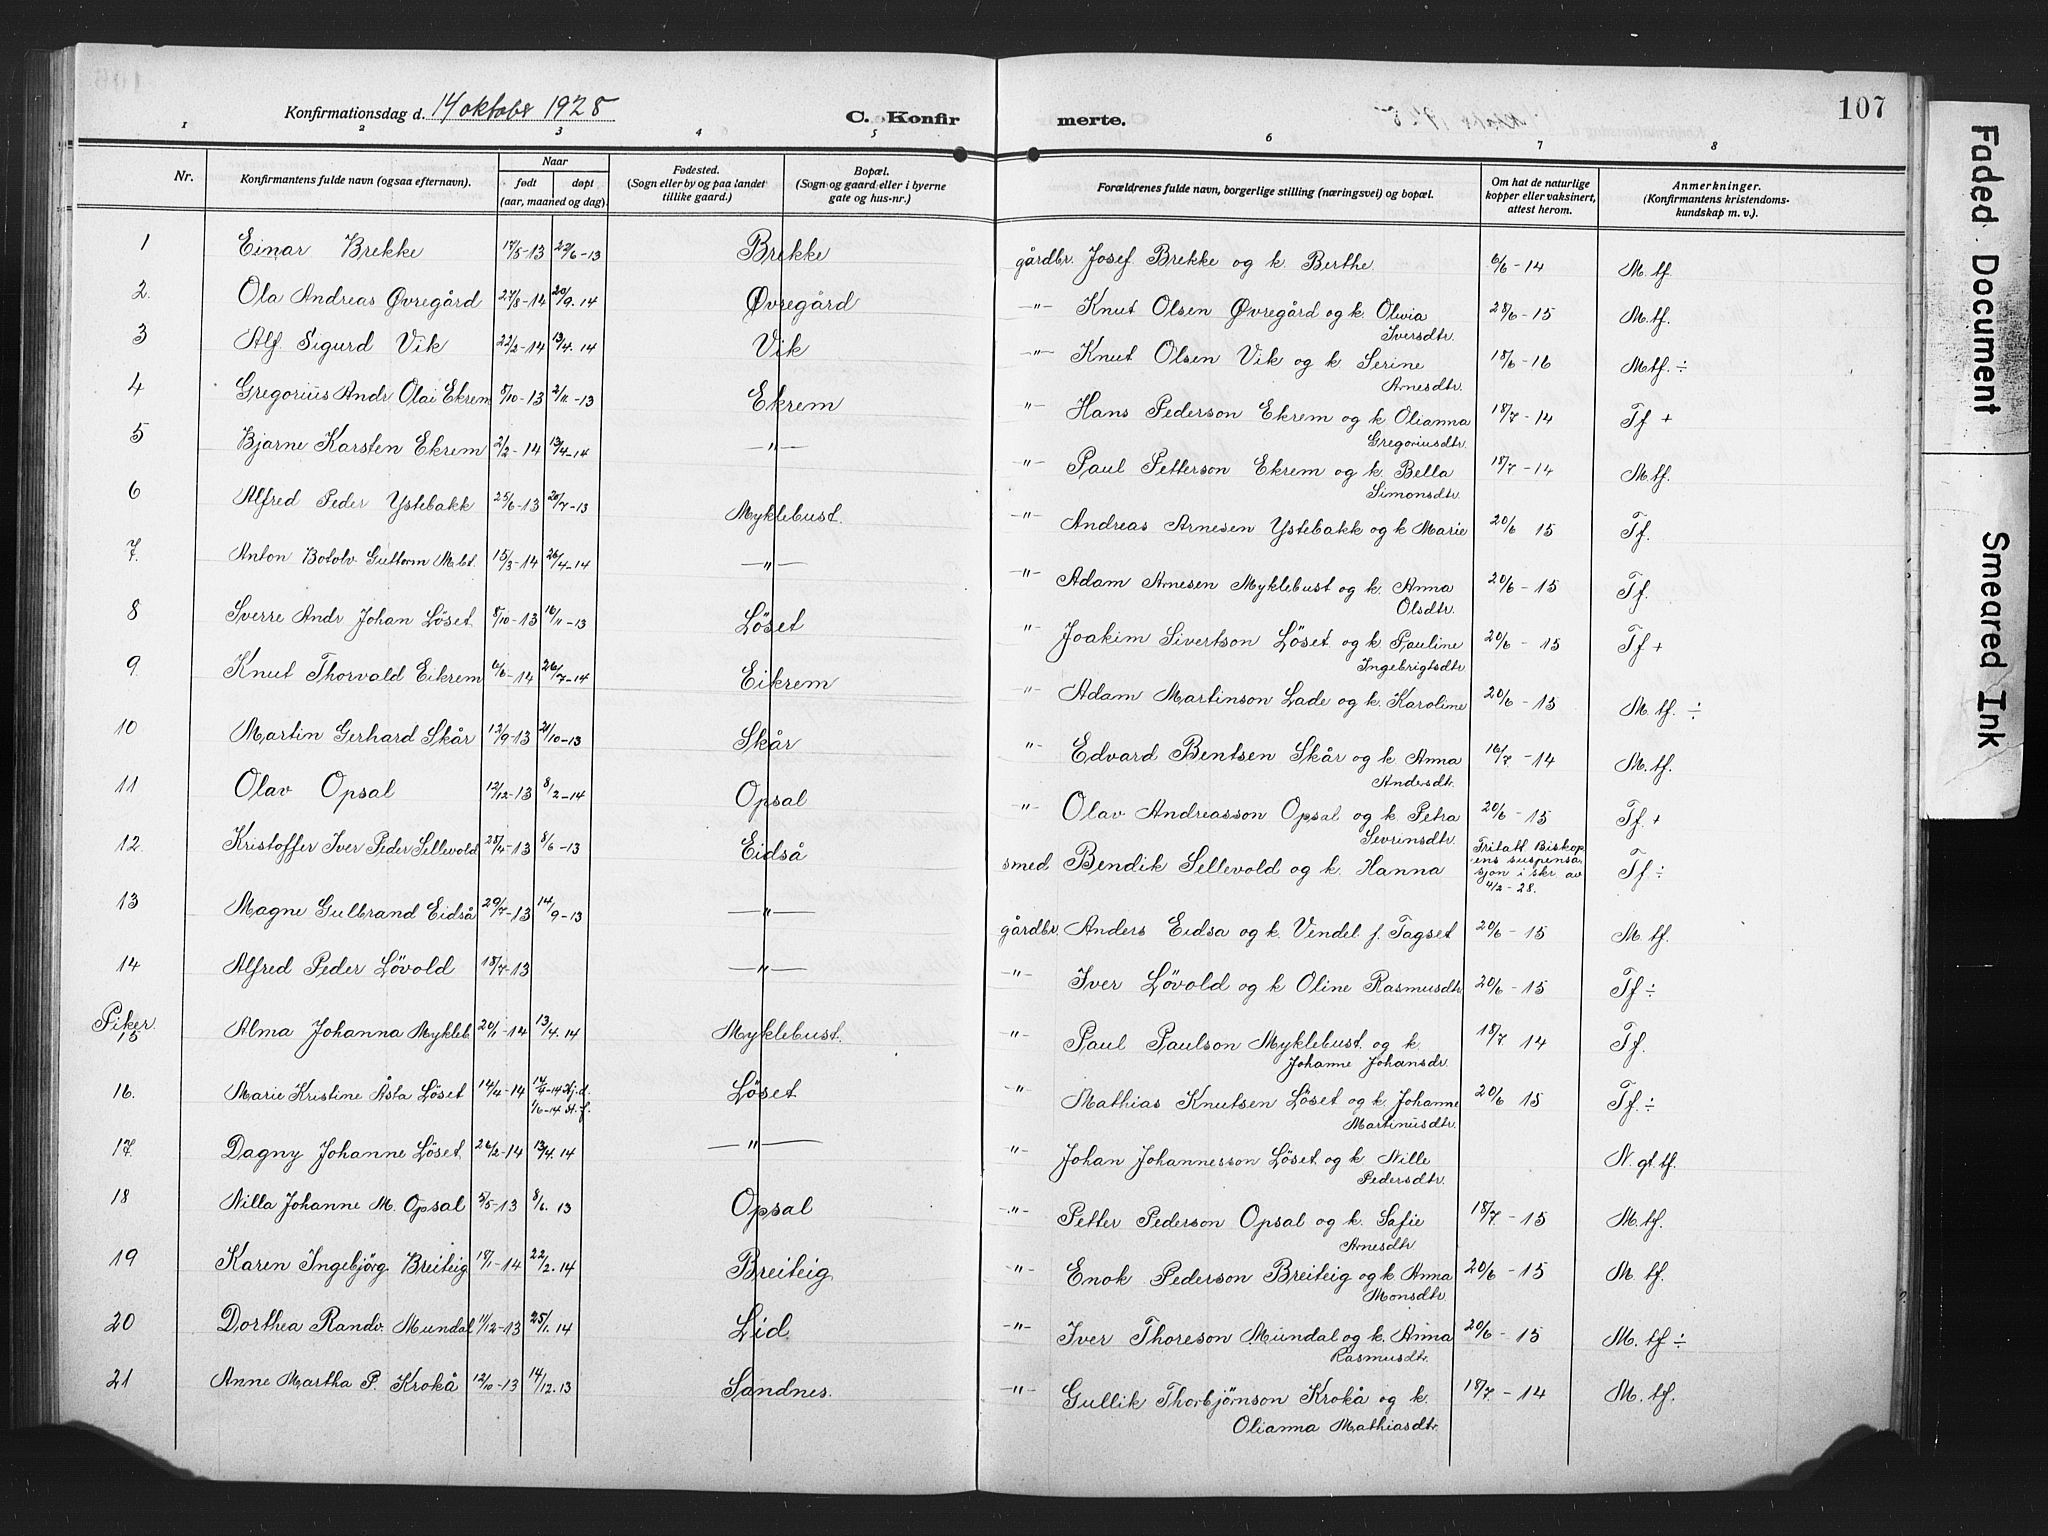 107
Faded Document
Smeared Ink
Konfirmationsdag d. 14 oktobr 1928
C. Konfirmerte.
1 2 3 4 5 6 7 8
Nr.
Konfirmantens fulde navn (ogsaa efternavn).
Naar
født døpt
(aar, maaned og dag).
Fødested.
(Sogn eller by og paa landet
tillike gaard.)
Bopæl.
(Sogn og gaard eller i byerne
gate og hus-nr.)
Forældrenes fulde navn, borgerlige stilling (næringsvei) og bopæl.
Om hat de naturlige
kopper eller vaksinert,
attest herom.
Anmerkninger.
(Konfirmantens kristendoms-
kundskap m. v.).
1 Einar Brekke 17/5-13 22/6-13 Brekke gårdbr. Josef Brekke og k. Berthe 6/6-14 M.tf.
2. Ola Andreas Øvregård 27/8-14 20/9.14 Øvregård -"- Knut Olsen Øvregård og k. Olivia 28/6-15 M.tf.
Iversdtr.
3 Alf. Sigurd Vik 22/2-14 13/4.14 Vik -"- Knut Olsen Vik og k. Serine 18/6-16 Mtf. ÷
Arnesdtr.
4 Gregorius Andr Olai Ekrem 8/10-13 2/11-13 Ekrem "- Hans Pederson Ekrem og k Olianna 18/7-14 Tf +
Gregoriusdtr.
5 Bjarne Karsten Ekrem 2/2-14 13/4-14 -"- "- Paul Petterson Ekrem og k. Bella 18/7-14 M.tf.
Simonsdtr.
6 Alfred Peder Ystebakk 25/6-13 20/7-13 Myklebust. -"- Andreas Arnesen Ystebakk og k Marie 20/6 15 Tf.
7. Anton Botolv Guttorm Mbt. 15/3-14 26/4-14 -"- "- Adam Arnesen Myklebust og k. Anna 20/6-15 Tf.
Olsdtr.
8 Sverre Andr Johan Löset 8/10-13 16/11-13 Löset "- Joakim Sivertson Löset og k Pauline 20/6-15 Tf +
Ingebrigtsdtr.
9 Knut Thorvald Eikrem 6/6-14 26/7-14 Eikrem "- Adam Martinson Lade og k. Karoline 20/6-15 M. tf. ÷
10 Martin Gerhard Skår 12/9-13 21/10-13 Skår "- Edvard Bentsen Skår og k Anna 16/7-14 M.tf.
Andersdtr.
11 Olav Opsal 12/12-13 8/2-14 Opsal "- Olav Andreasson Opsal og k Petra 20/6-15 Tf.+
Sevrinsdtr.
12. Kristoffer Iver Peder Sellevold 28/4-13 8/6-13 Eidså smed Bendik Sellevold og k. Hanna Tritatt Biskop Tf ÷
ens suspensa-
sjon i skr av
4/2-28.
13 Magne Gulbrand Eidså 29/7-13 14/9-13 -"- gårdbr. Anders Eidsa og k. Vendel f. Tagset 20/6-15 M. tf.
14 Alfred Peder Lövold 18/7-13 -"- "- Iver Lövold og k Oline Rasmusdtr 20/6-15 Tf ÷
Piker.
15 Alma Johanna Mykleb. 20/1-14 13/4.14 Myklebust. "- Paul Paulson Myklebust og k 18/7 14 Tf.
Johanne Johansdr.
16. Marie Kristine Åsta Löset 14/4-14 14/4-14 Hj.d. Löset "- Mathias Knutsen Löset og k. Johanne 20/6 15 Tf. ÷
1/6-14 st.f. Martinusdtr.
17. Dagny Johanne Löset 26/2-14 13/4.14 -"- "- Johan Johannesson Löset og k Nille N. gt tf.
Pedersdtr.
18 Nilla Johanne M. Opsal 5/5-13 8/6.13 Opsal -"- Petter Pederson Opsal og k. Safie 18/7-15 M. tf.
Arnesdtr
19 Karen Ingebjörg Breiteig 18/1-14 22/2.14 Breiteig "- Enok Pederson Breiteig og k Anna 20/6-15 M. tf.
Monsdtr
20 Dorthea Randv. Mundal 11/12-13 25/1.14 Lid. -"- Iver Thoreson Mundal og k. Anna 20/6-15 M. tf ÷
Rasmusdtr.
21 Anne Martha P. Krokå 12/10-13 14/12.13 Sandnes. -"- Gullik Thorbjørnson Krokå og k. 18/7-14 M. tf.
Olianna Mathiasdtr.